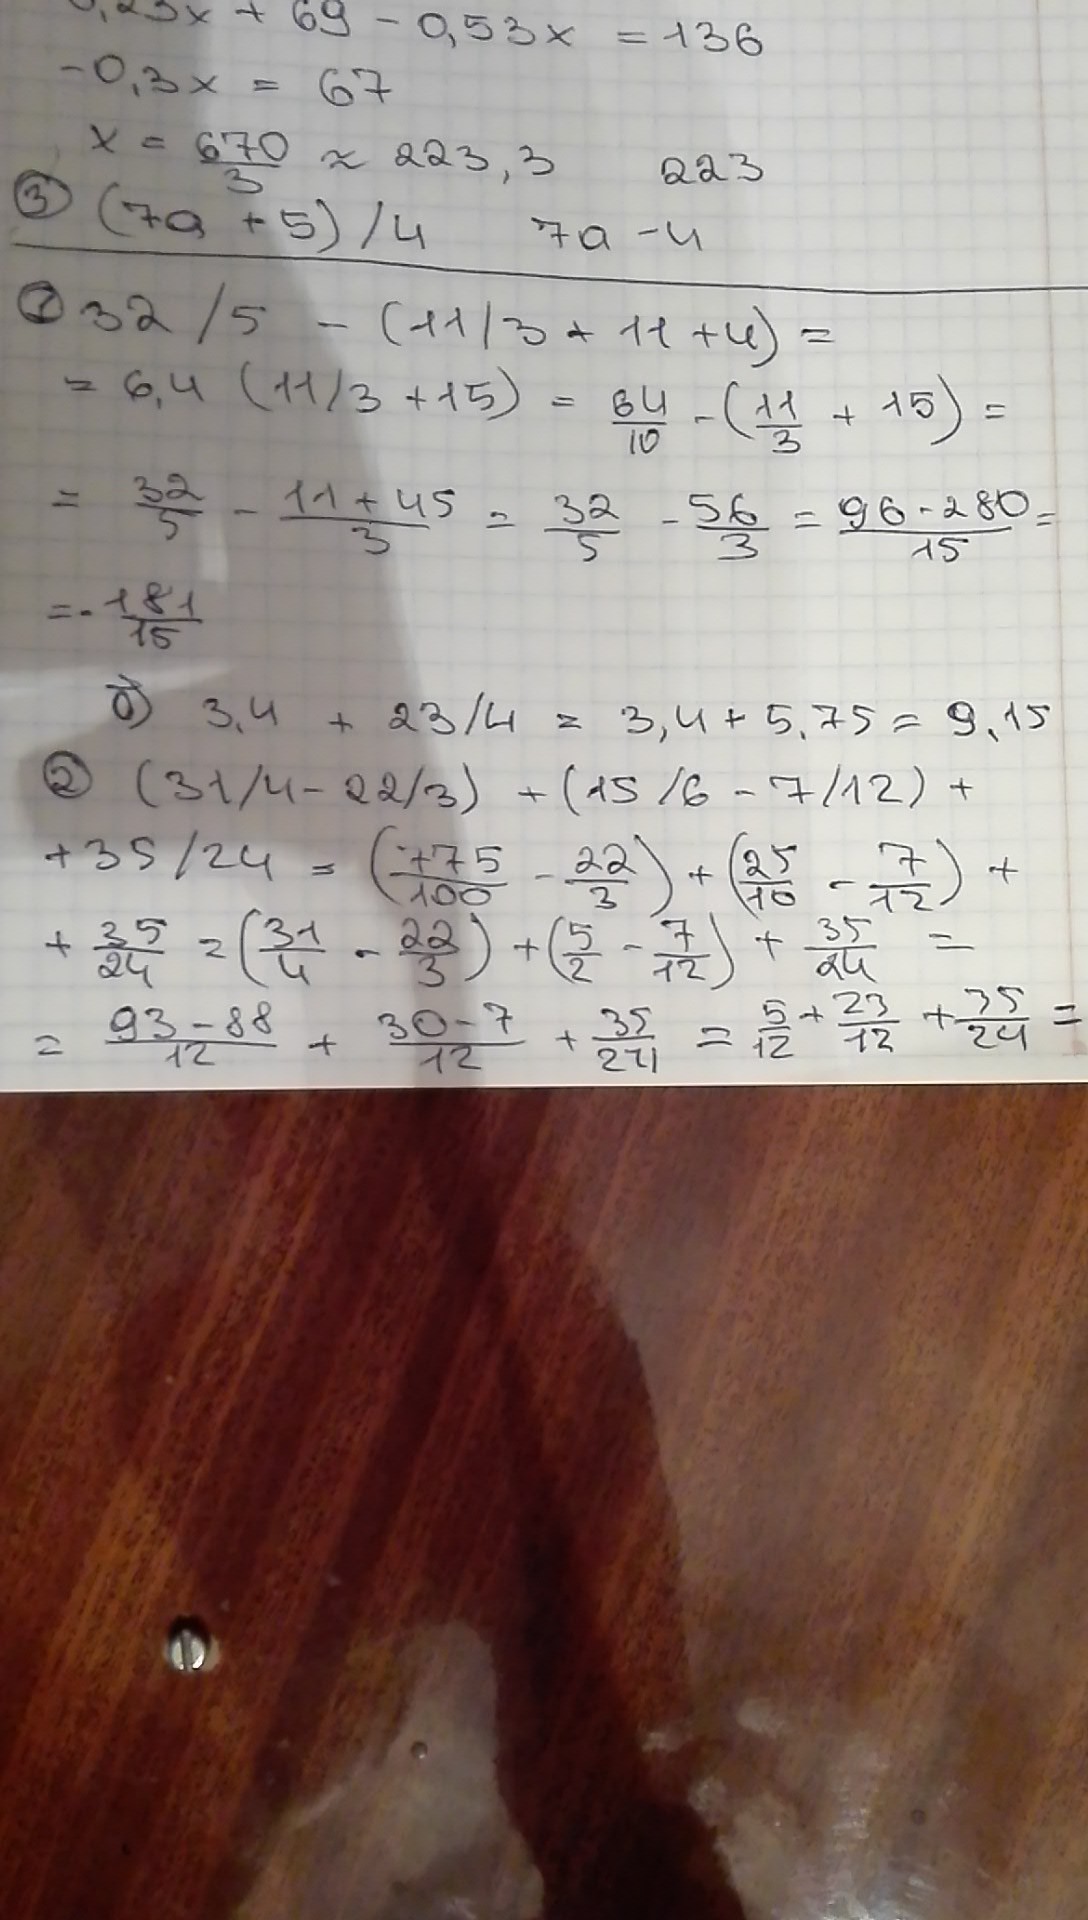 0,23x + 69 - 0,53x = 136
-0,3x = 67
x = 670/3 ≈ 223,3 223
③ (7a + 5) / 4 7a - 4
① 32 / 5 - (11/3 + 11 + 4) =
= 6,4 (11/3 + 15) = 64/10 - (11/3 + 15) =
= 32/5 - (11 + 45)/3 = 32/5 - 56/3 = (96 - 280)/15 =
= - 181/15
б) 3,4 + 23/4 = 3,4 + 5,75 = 9,15
② (31/4 - 22/3) + (15/6 - 7/12) +
+ 35/24 = (775/100 - 22/3) + (25/10 - 7/12) +
+ 35/24 = (31/4 - 22/3) + (5/2 - 7/12) + 35/24 =
= (93 - 88)/12 + (30 - 7)/12 + 35/24 = 5/12 + 23/12 + 35/24 =